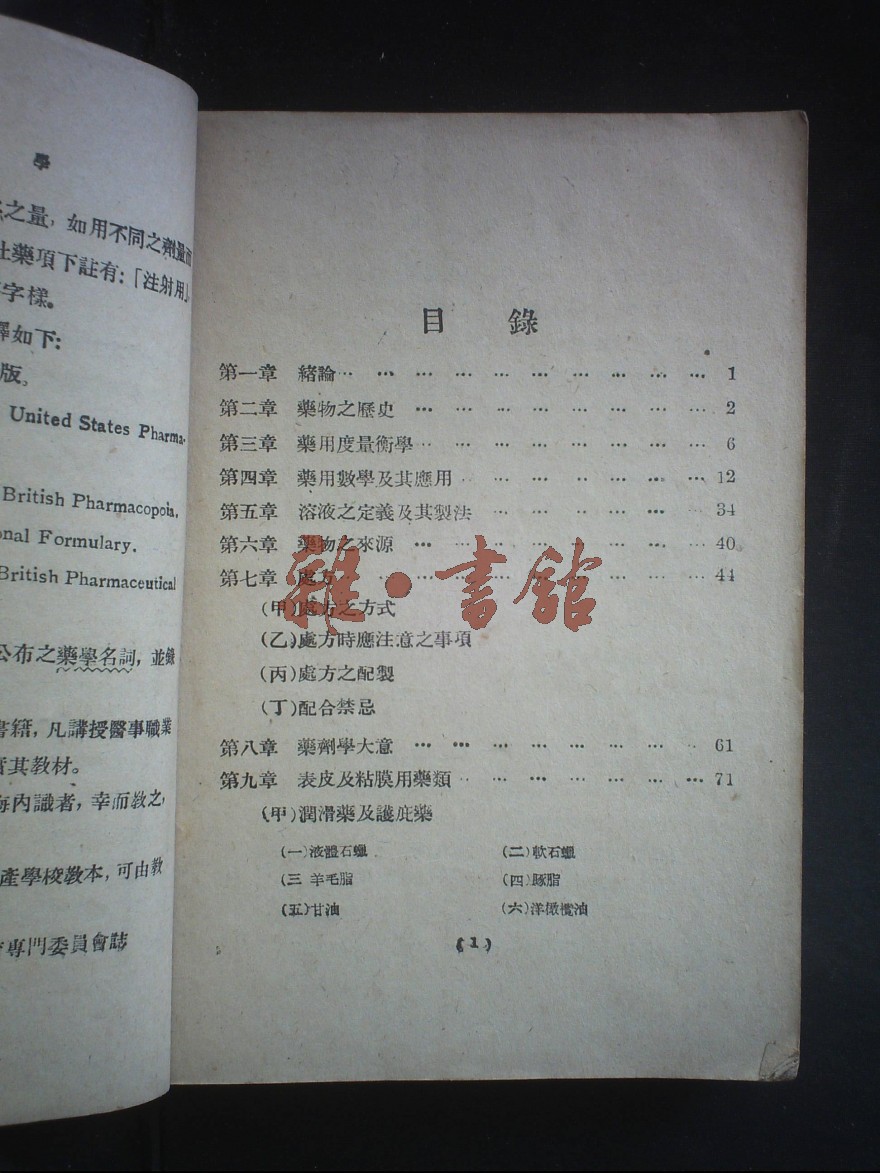 學
之量，如用不同之劑量而
藥項下註有：「注射用」
字樣。
如下：
版。
United States Pharma-
British Pharmacopoia.
onal Formulary.
British Pharmaceutical
公布之藥學名詞，並錄
書籍，凡講授醫事職業
其教材。
海內識者，幸而教之，
產學校教本，可由教
專門委員會誌
目 錄
第一章 緒論… … … … … … … … … … 1
第二章 藥物之歷史 … … … … … … … … 2
第三章 藥用度量衡學… … … … … … … … 6
第四章 藥用數學及其應用 … … … … … … … 12
第五章 溶液之定義及其製法 … … … … … … 34
第六章 藥物之來源 … … … … … … … … 40
第七章 處方… … … … … … … … … … 44
(甲)處方之方式
(乙)處方時應注意之事項
(丙)處方之配製
(丁)配合禁忌
第八章 藥劑學大意 … … … … … … … … 61
第九章 表皮及粘膜用藥類 … … … … … … … 71
(甲)潤滑藥及護庇藥
(一)液體石蠟 (二)軟石蠟
(三 羊毛脂 (四)豚脂
(五)甘油 (六)洋橄欖油
(1)
雜·書館